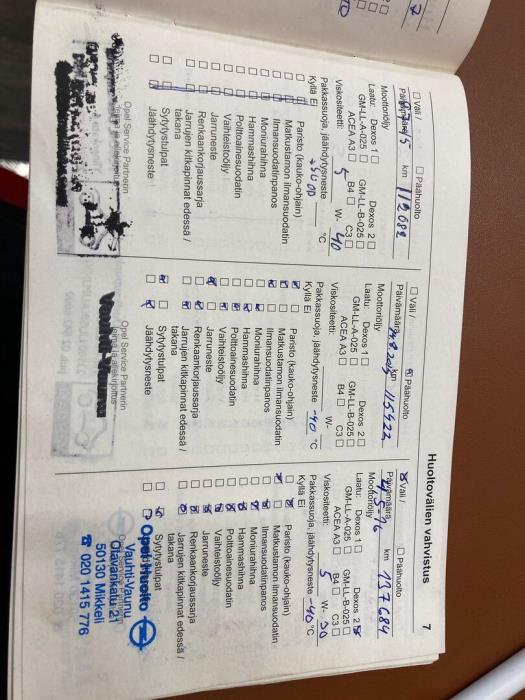 Huoltovälien vahvistus
7
☐ Väli / ☐ Päähuolto
Päivämäärä km 112082
Moottoriöljy
Laatu: Dexos 1 ☐ Dexos 2 ☐
GM-LL-A-025 ☐ GM-LL-B-025 ☐
ACEA A3 ☐ B4 ☐ C3 ☐
Viskositeetti: 5 W- 40
Pakkassuoja, jäähdytysneste °C
Kyllä Ei
Paristo (kauko-ohjain)
Matkustamon ilmansuodatin
Ilmansuodatinpanos
Moniurahihna
Hammashihna
Polttoainesuodatin
Vaihteistoöljy
Jarruneste
Renkaankorjaussarja
Jarrujen kitkapinnat edessä /
takana
Sytytystulpat
Jäähdytysneste
Opel Service Partnerin
☐ Väli / ☒ Päähuolto
Päivämäärä km 115422
Moottoriöljy
Laatu: Dexos 1 ☐ Dexos 2 ☐
GM-LL-A-025 ☐ GM-LL-B-025 ☐
ACEA A3 ☐ B4 ☐ C3 ☐
Viskositeetti: W-
Pakkassuoja, jäähdytysneste -40 °C
Kyllä Ei
Paristo (kauko-ohjain)
Matkustamon ilmansuodatin
Ilmansuodatinpanos
Moniurahihna
Hammashihna
Polttoainesuodatin
Vaihteistoöljy
Jarruneste
Renkaankorjaussarja
Jarrujen kitkapinnat edessä /
takana
Sytytystulpat
Jäähdytysneste
Opel Service Partnerin
leima ja allekirjoitus
☒ Väli / ☐ Päähuolto
Päivämäärä km 137684
Moottoriöljy
Laatu: Dexos 1 ☐ Dexos 2 ☒
GM-LL-A-025 ☐ GM-LL-B-025 ☐
ACEA A3 ☐ B4 ☐ C3 ☐
Viskositeetti: 5 W- 30
Pakkassuoja, jäähdytysneste -40 °C
Kyllä Ei
Paristo (kauko-ohjain)
Matkustamon ilmansuodatin
Ilmansuodatinpanos
Moniurahihna
Hammashihna
Polttoainesuodatin
Vaihteistoöljy
Jarruneste
Renkaankorjaussarja
Jarrujen kitkapinnat edessä /
takana
Sytytystulpat
Opel Huolto
Vauhti-Vaunu
Otavankatu 21
50130 Mikkeli
☎ 020 1415 776